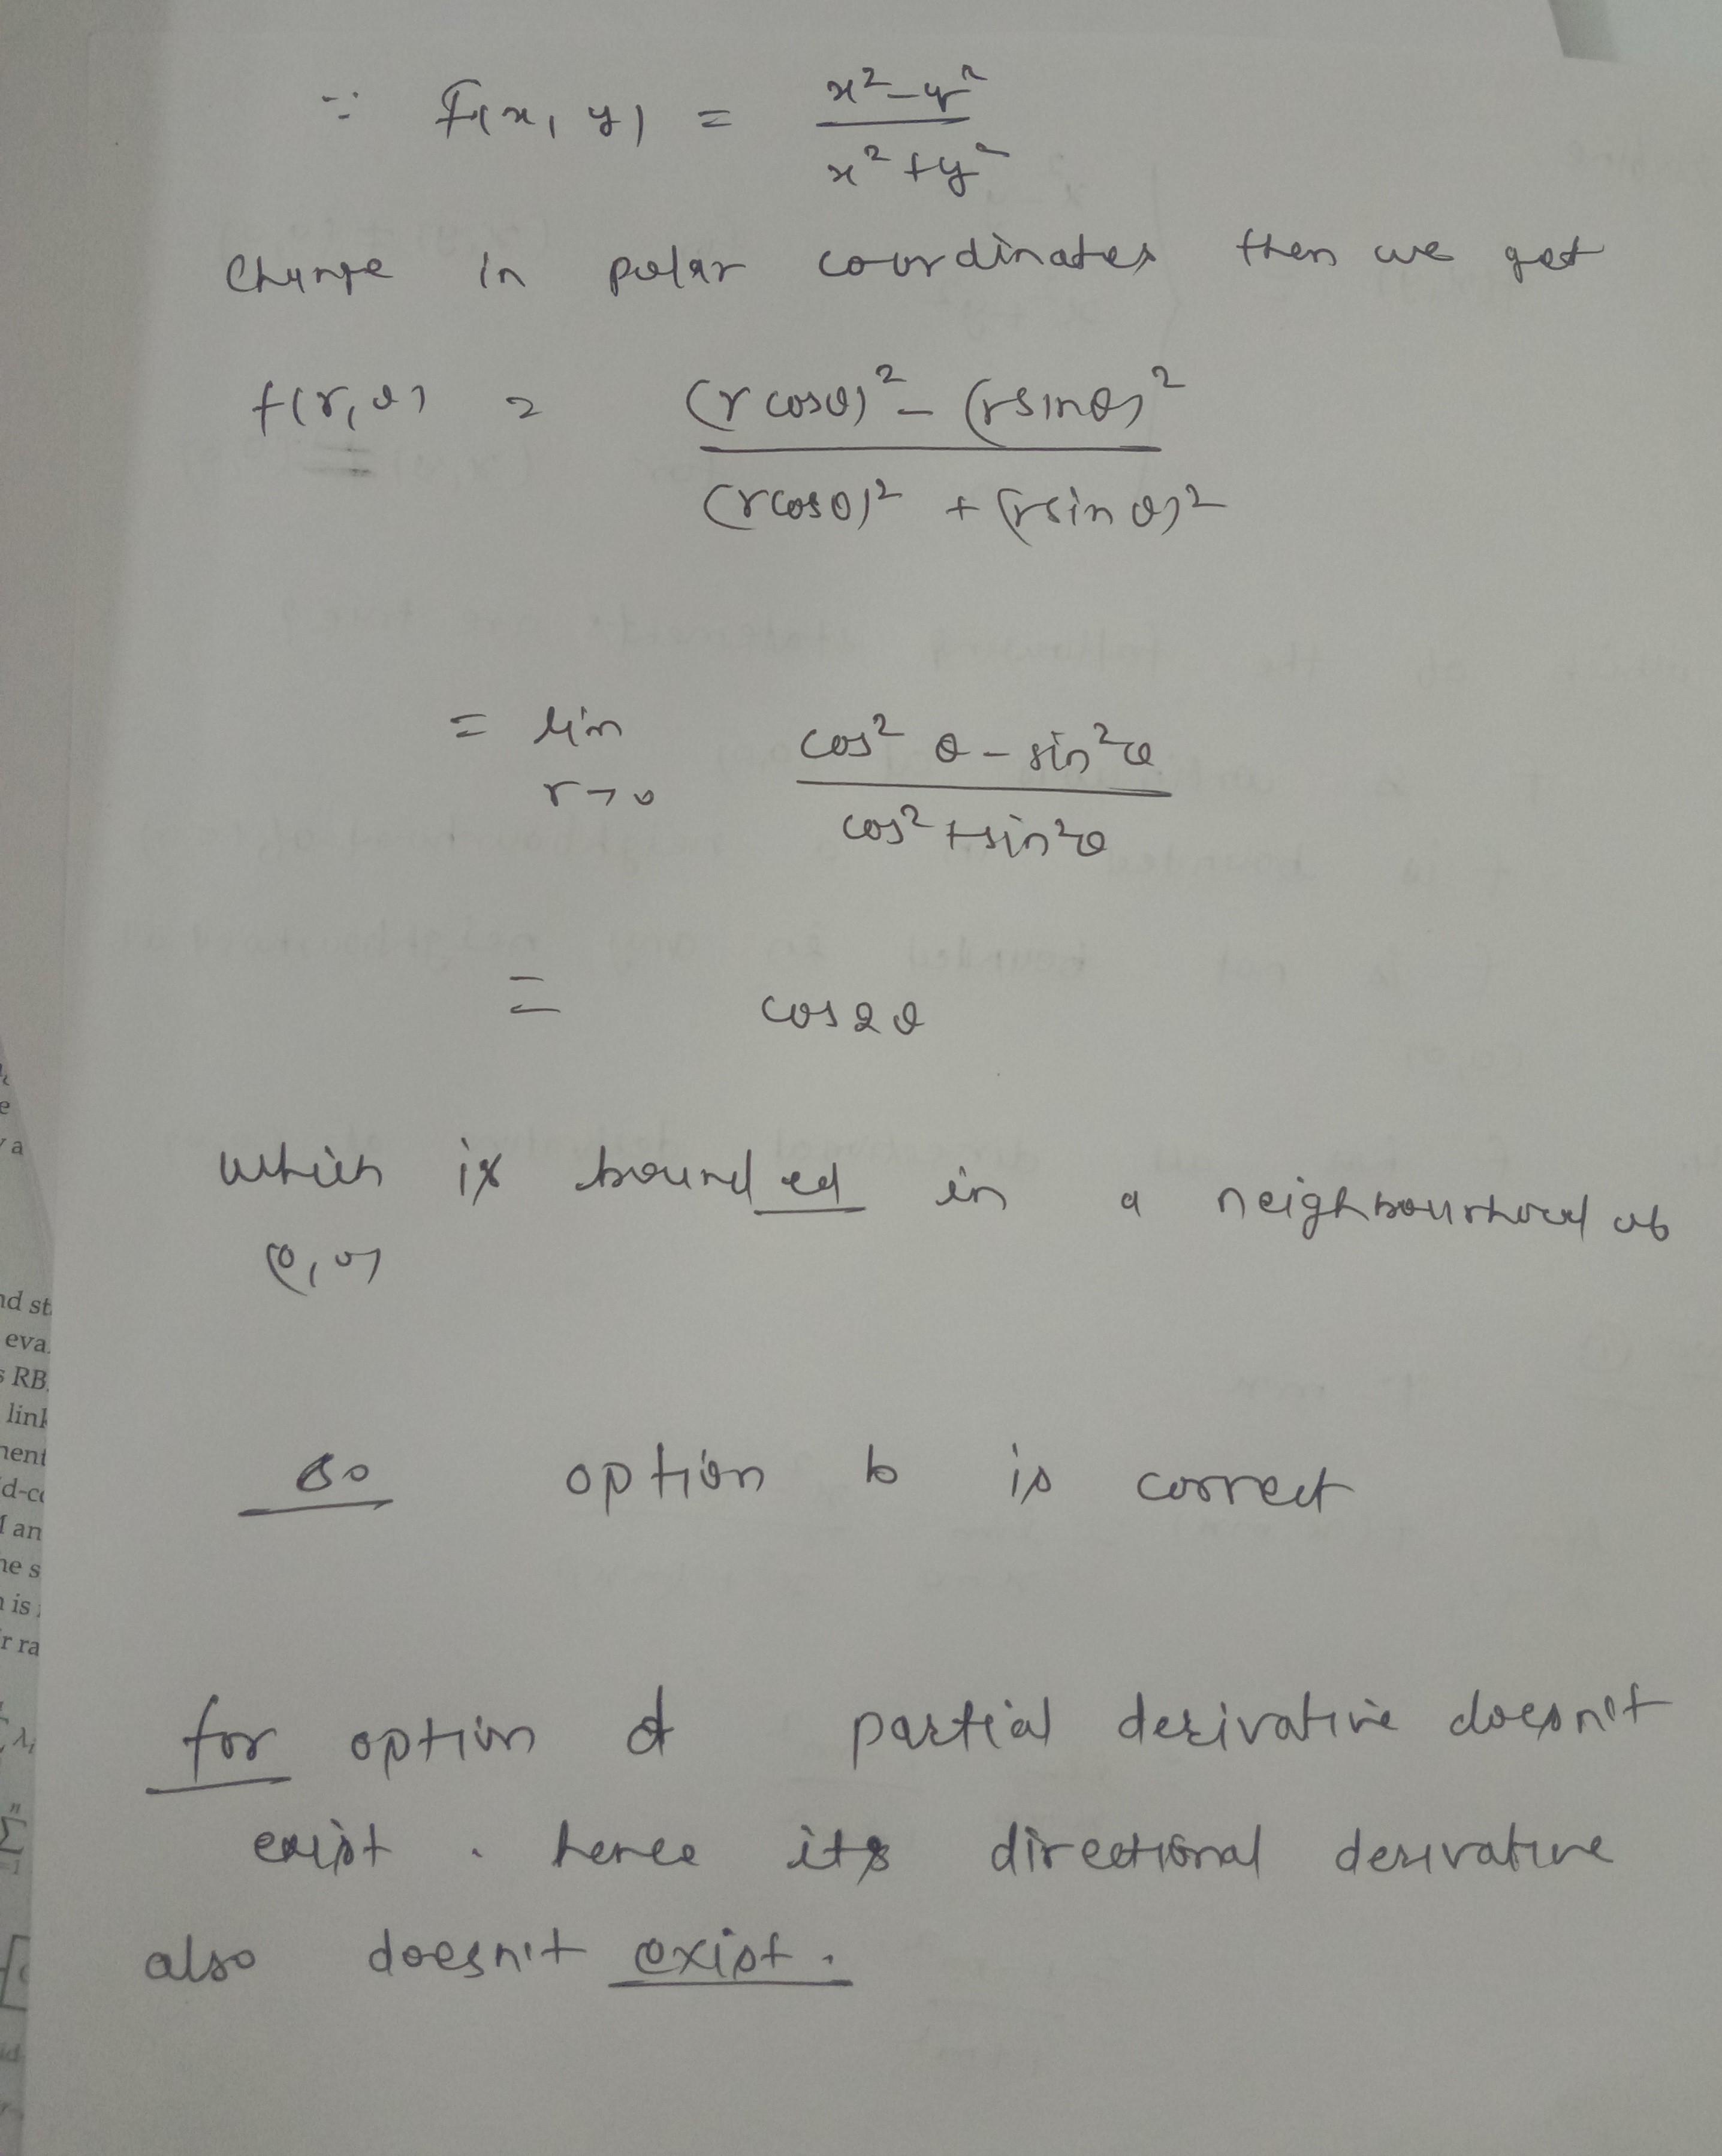 ∵ f(x, y) = x² - y² / x² + y²
Change in polar coordinates then we get
f(r, θ) = (r cosθ)² - (r sinθ)² / (r cosθ)² + (r sin θ)²
= lim r→0 cos² θ - sin² θ / cos² + sin² θ
= cos 2θ
which is bounded in a neighbourhood of
(0, 0)
so option b is correct
for option d partial derivative doesn't
exist. hence its directional derivative
also doesn't exist.
nd st
eva
RB
link
d-c
an
is
r ra